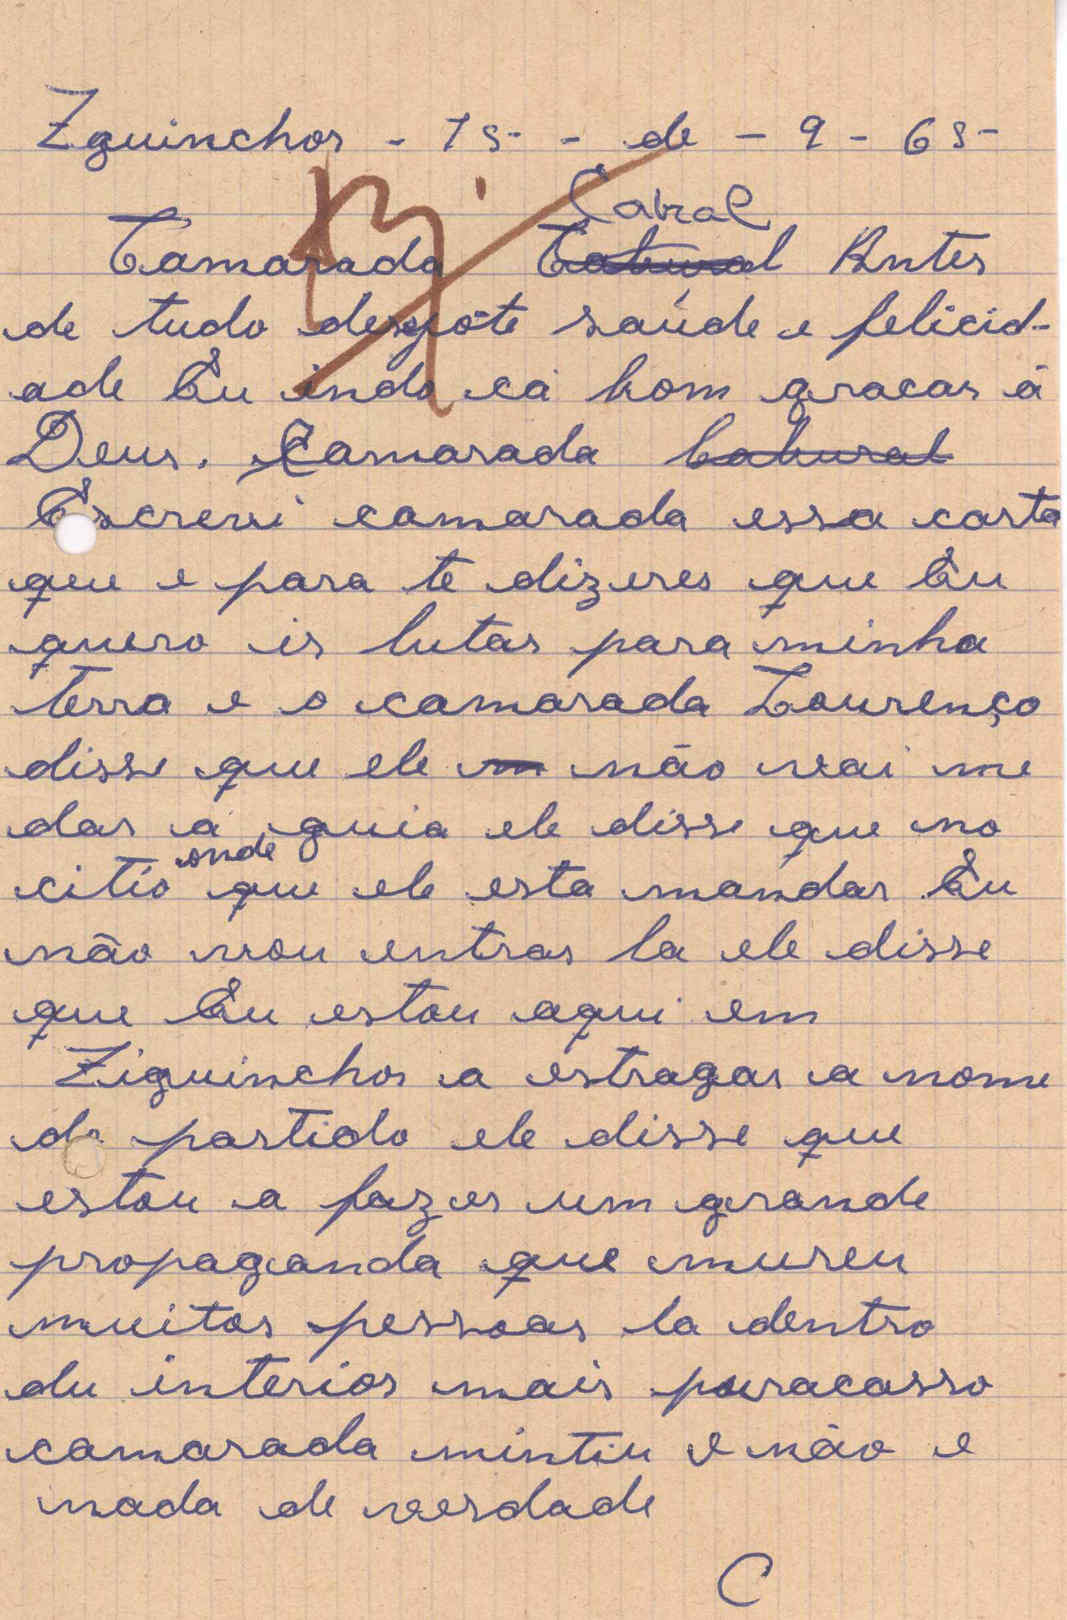 Zguinchor - 15 - - de - 9 - 65 -
Cabral
Camarada Cabural Antes
de tudo desyote saúde e felicid-
ade Eu indo cá bom gracas á
Deus. Camarada Cabural
Escrevi camarada essa carta
que e para te dizeres que Eu
quero ir lutar para minha
terra e o camarada Lourenço
disse que ele m não vai me
dar á guia ele disse que no
onde
citío que ele esta mandar Eu
não vou entrar la ele disse
que Eu estou aqui em
Ziguinchor a estragar a nome
do partido ele disse que
estou a fazer um grande
propaganda que mureu
muitas pessoas la dentro
du interior mais puracasso
camarada mintiu e não e
nada de verdade
C